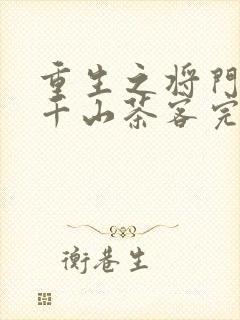 重生之将門
千山茶客完
衡巷生